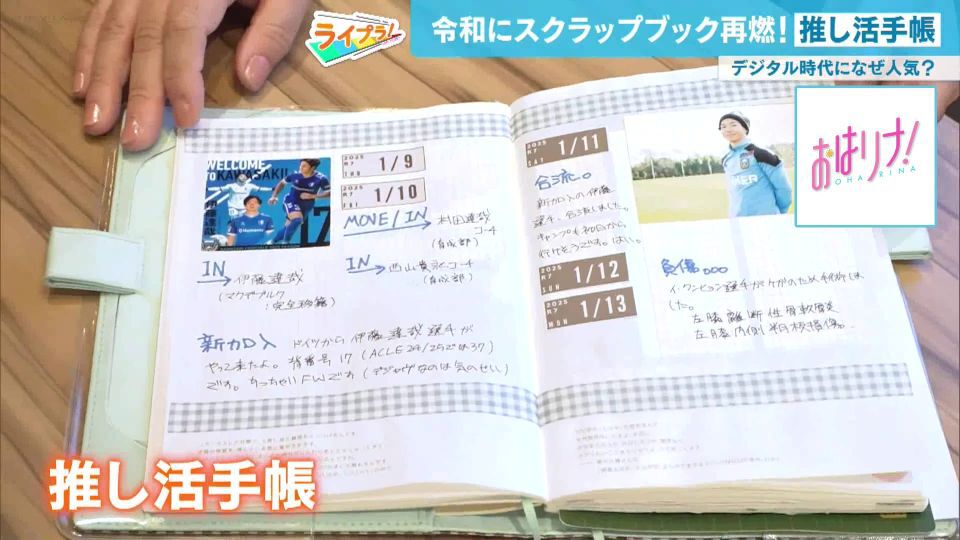 ライブラ!
令和にスクラップブック再燃! 推し活手帳
デジタル時代になぜ人気?
おはリナ!
OHARINA
WELCOME
TO KAWASAKI!
伊藤達哉
17
2025
R7
THU
1/9
2025
R7
FRI
1/10
MOVE/IN
村田達哉
コーチ
(育成部)
IN
伊藤達哉
(マクデブルク
:完全移籍)
IN
西山貴永コーチ
(育成部)
新加入 ドイツから伊藤達哉選手が
やって来たよ。背番号17 (ACLE24/25では37)
です。ちっちゃいFWです (デジャヴなのは気のせい)
2025
R7
SAT
1/11
合流。
新加入の伊藤
選手、合流しました。
キャンプも初日から
行けそうです。はい。
2025
R7
SUN
1/12
2025
R7
MON
1/13
負傷。。。
選手がケガのため手術しま
した。
左膝離断性骨軟骨炎
左膝内側半月板損傷。
推し活手帳